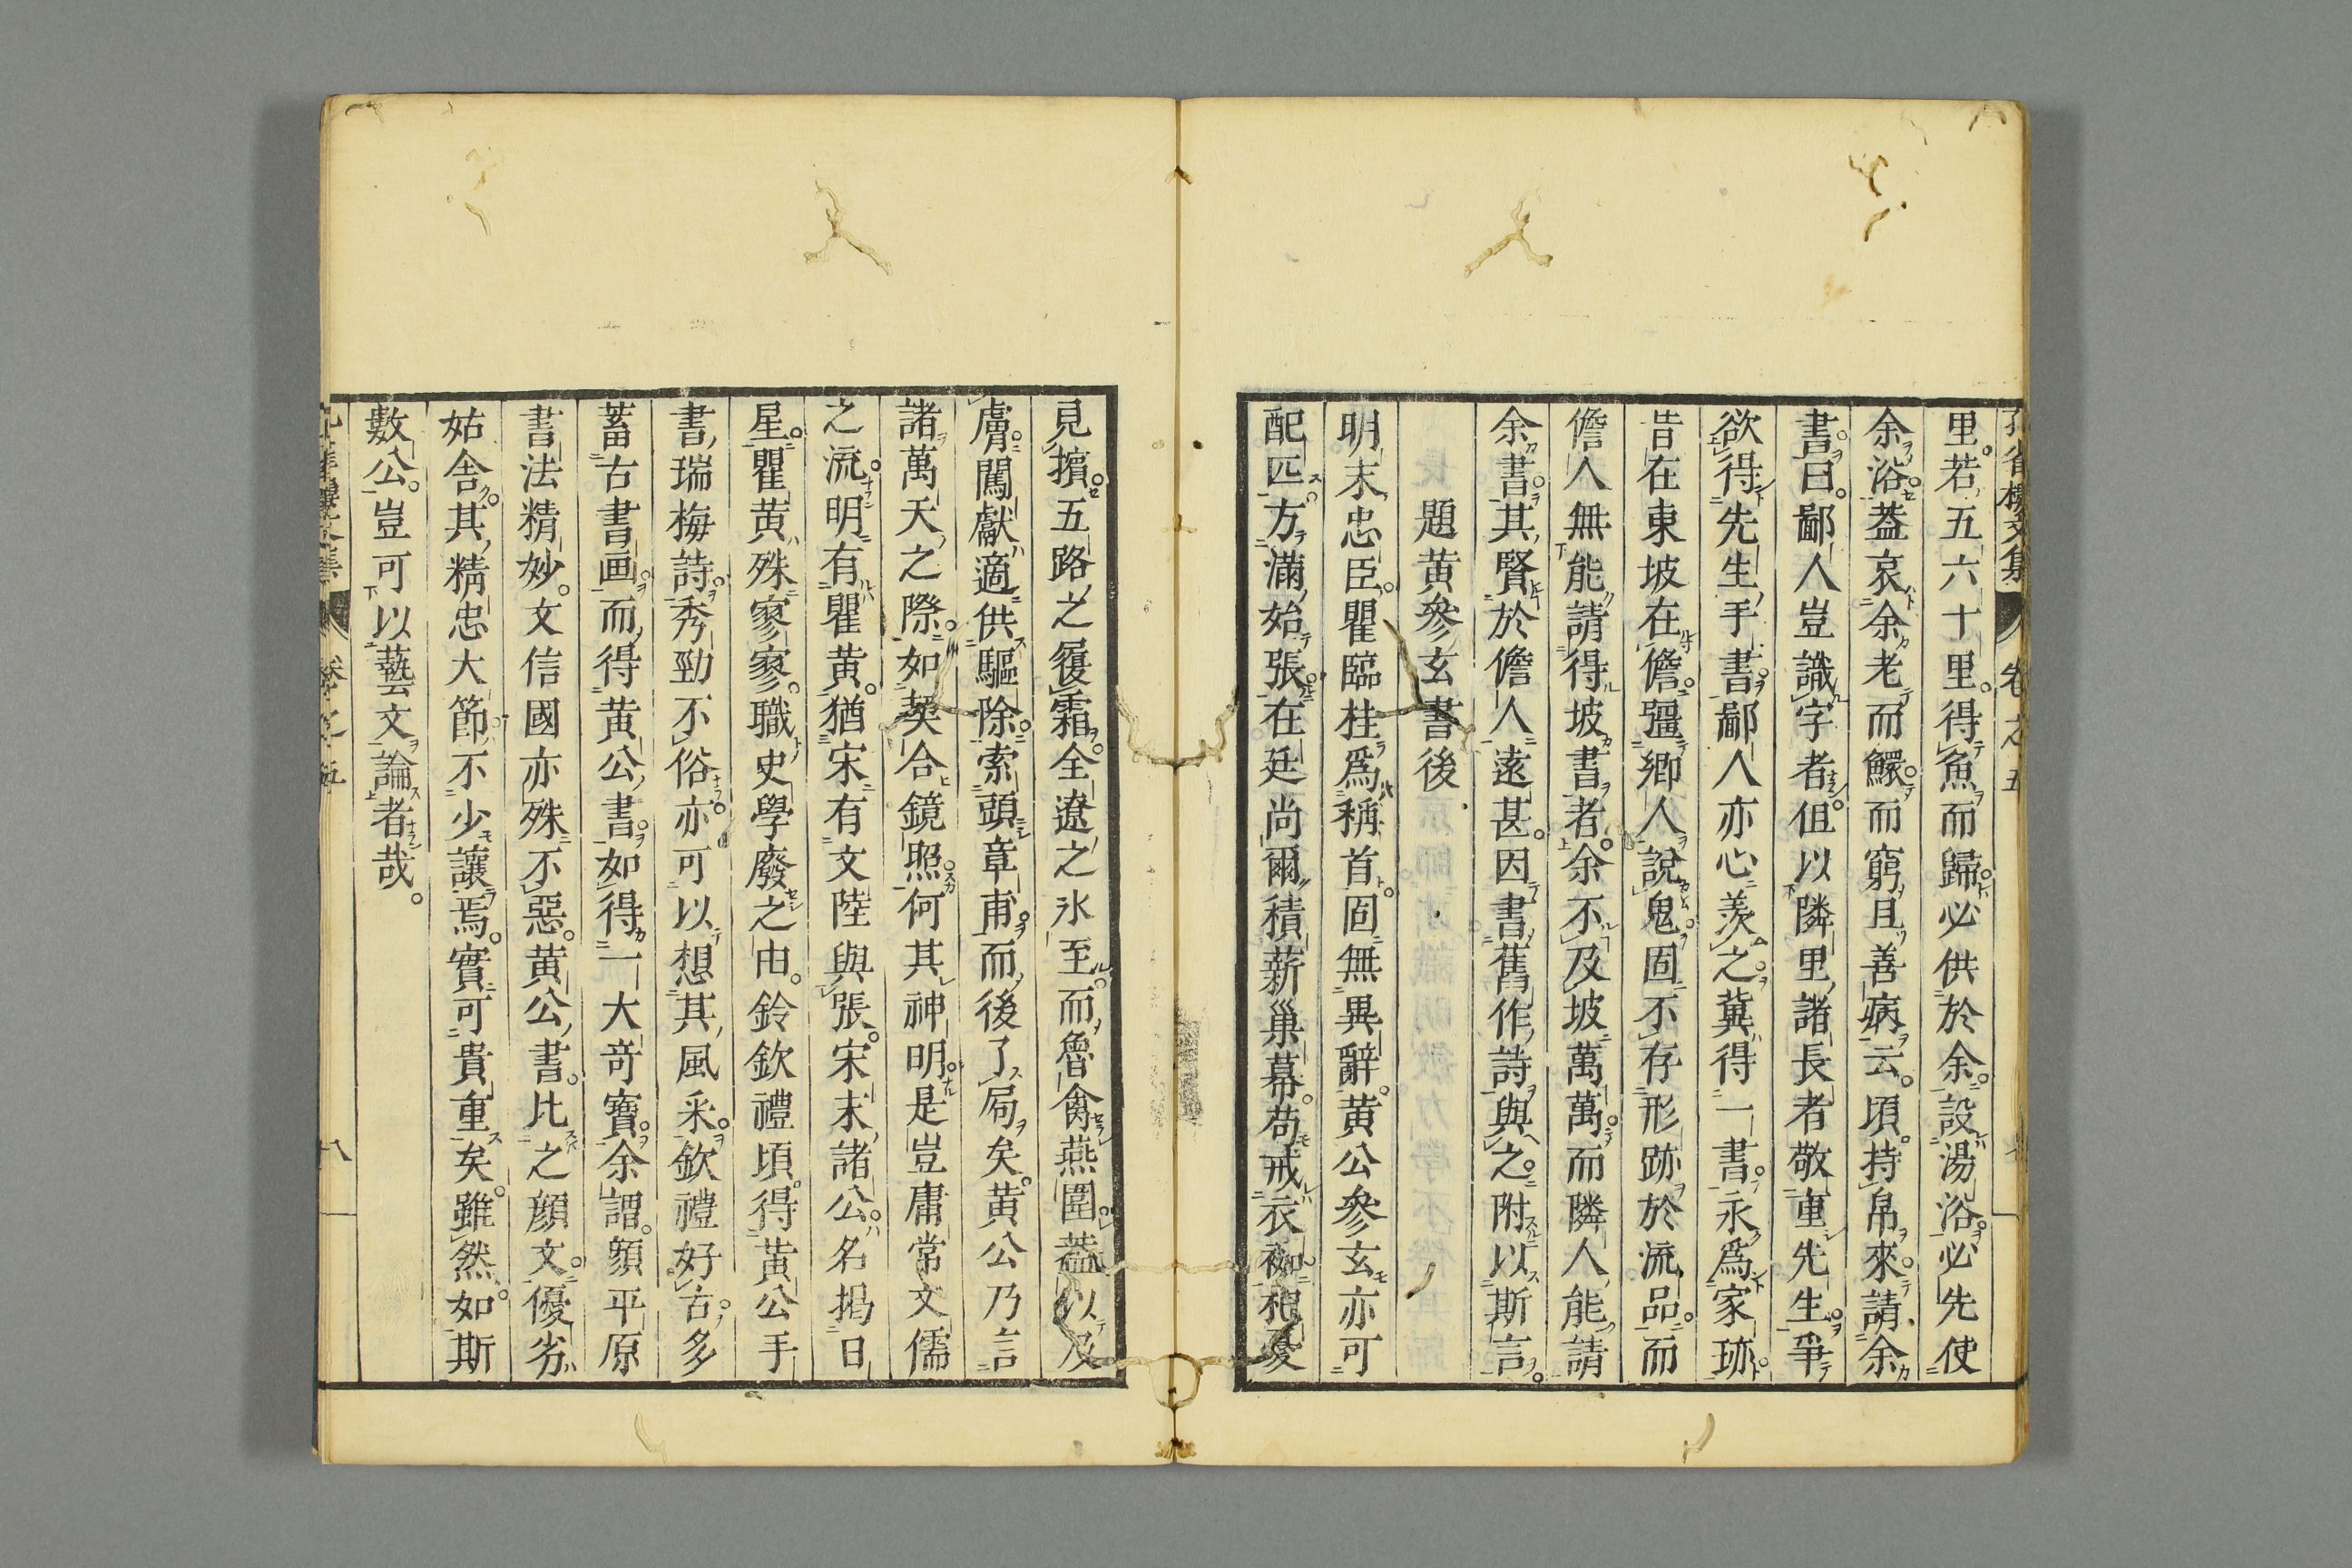 里。若五六十里。得魚而歸。必供於余。設湯浴。必先使
余浴。葢哀余老而鰥。而窮且善病云。頃持帛來。請余
書。曰。鄙人豈識字者。但以隣里諸長者敬重先生。爭
欲得先生手書。鄙人亦心羨之。冀得一書。永爲家珎。
昔在東坡在儋。彊郷人說鬼。固不存形跡於流品。而
儋人無能請得坡書者。余不及坡萬萬。而隣人能請
余書。其賢於儋人遠甚。因書舊作詩與之。附以斯言。
題黄參玄書後
明末忠臣。瞿臨桂爲稱首。固無異辭。黄公參玄亦可
配匹。方滿始張。在廷尚爾積薪巢幕。苟戒衣袽。杞憂
見擯。五路之履霜。全遼之氷至。而魯禽燕圄。葢以及
膚。闖獻適供驅除。索頭章甫。而後了局矣。黄公乃言
諸萬天之際。如契合鏡照。何其神明。是豈庸常文儒
之流。明有瞿黄。猶宋有文陸與張。宋末諸公。名揭日
星。瞿黄殊寥寥。職史學廢之由。鈴欽禮頃得黄公手
書瑞梅詩。秀勁不俗。亦可以想其風采。欽禮好古。多
蓄古書画。而得黄公書。如得一大奇寶。余謂。顔平原
書法精妙。文信國亦殊不惡。黄公書。比之顔文。優劣
姑舍。其精忠大節。不少讓焉。實可貴重矣。雖然。如斯
數公。豈可以藝文論者哉。
卷之五
八